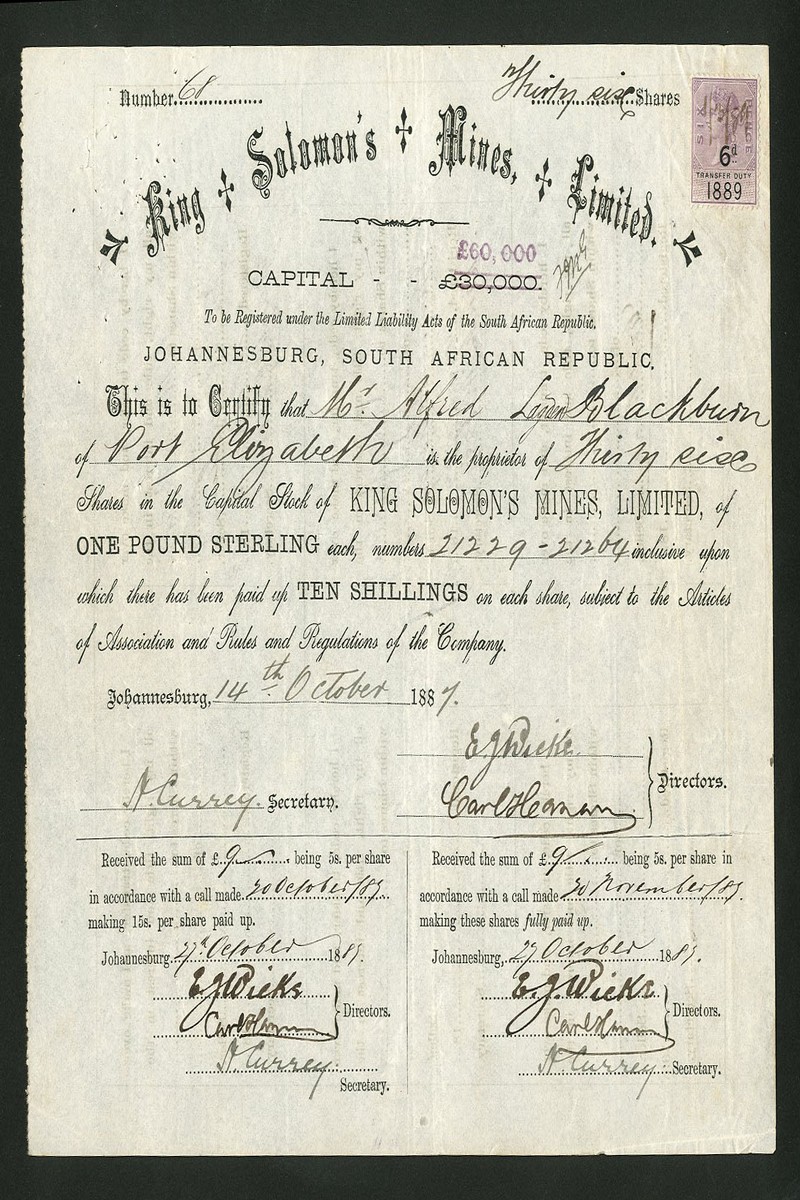 Number 68 Thirty six Shares
SIX PENCE
6d
TRANSFER DUTY
1889
King Solomon's Mines, Limited.
£60,000
CAPITAL - - £30,000.
To be Registered under the Limited Liability Acts of the South African Republic.
JOHANNESBURG, SOUTH AFRICAN REPUBLIC.
This is to Certify that Mr. Alfred Blackburn
of Port Elizabeth is the proprietor of Thirty six
Shares in the Capital Stock of KING SOLOMON'S MINES, LIMITED, of
ONE POUND STERLING each, numbers 21229-21264 inclusive upon
which there has been paid up TEN SHILLINGS on each share, subject to the Articles
of Association and Rules and Regulations of the Company.
Johannesburg, 14th October 1889.
E J Wicks
Carl Hanau
Directors.
H. Currey. Secretary.
Received the sum of £ 9 being 5s. per share
in accordance with a call made 20 October /89.
making 15s. per share paid up.
Johannesburg 27th October 1889.
E J Wicks
Carl Hanau
Directors.
H. Currey.
Secretary.
Received the sum of £ 9 being 5s. per share in
accordance with a call made 20 November /89.
making these shares fully paid up.
Johannesburg, 27 October 1889.
E. J. Wicks
Carl Hanau
Directors.
H. Currey. Secretary.